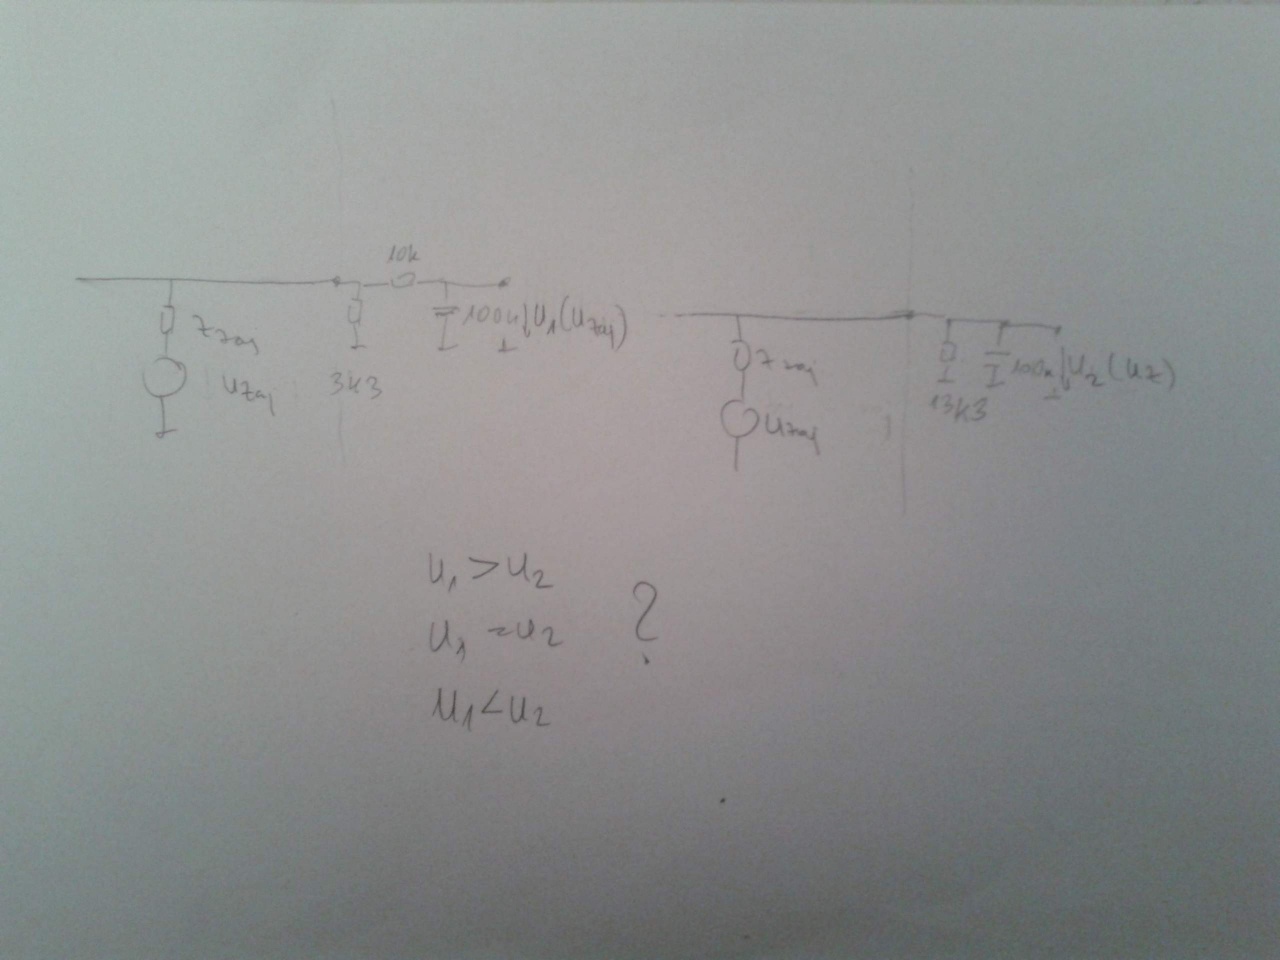 10k
Zzaj
Uzaj
3k3
100n
U1(Uzaj)
Zzaj
Uzaj
13k3
100n
U2(Uz)
U1 > U2
U1 = U2
?
U1 < U2